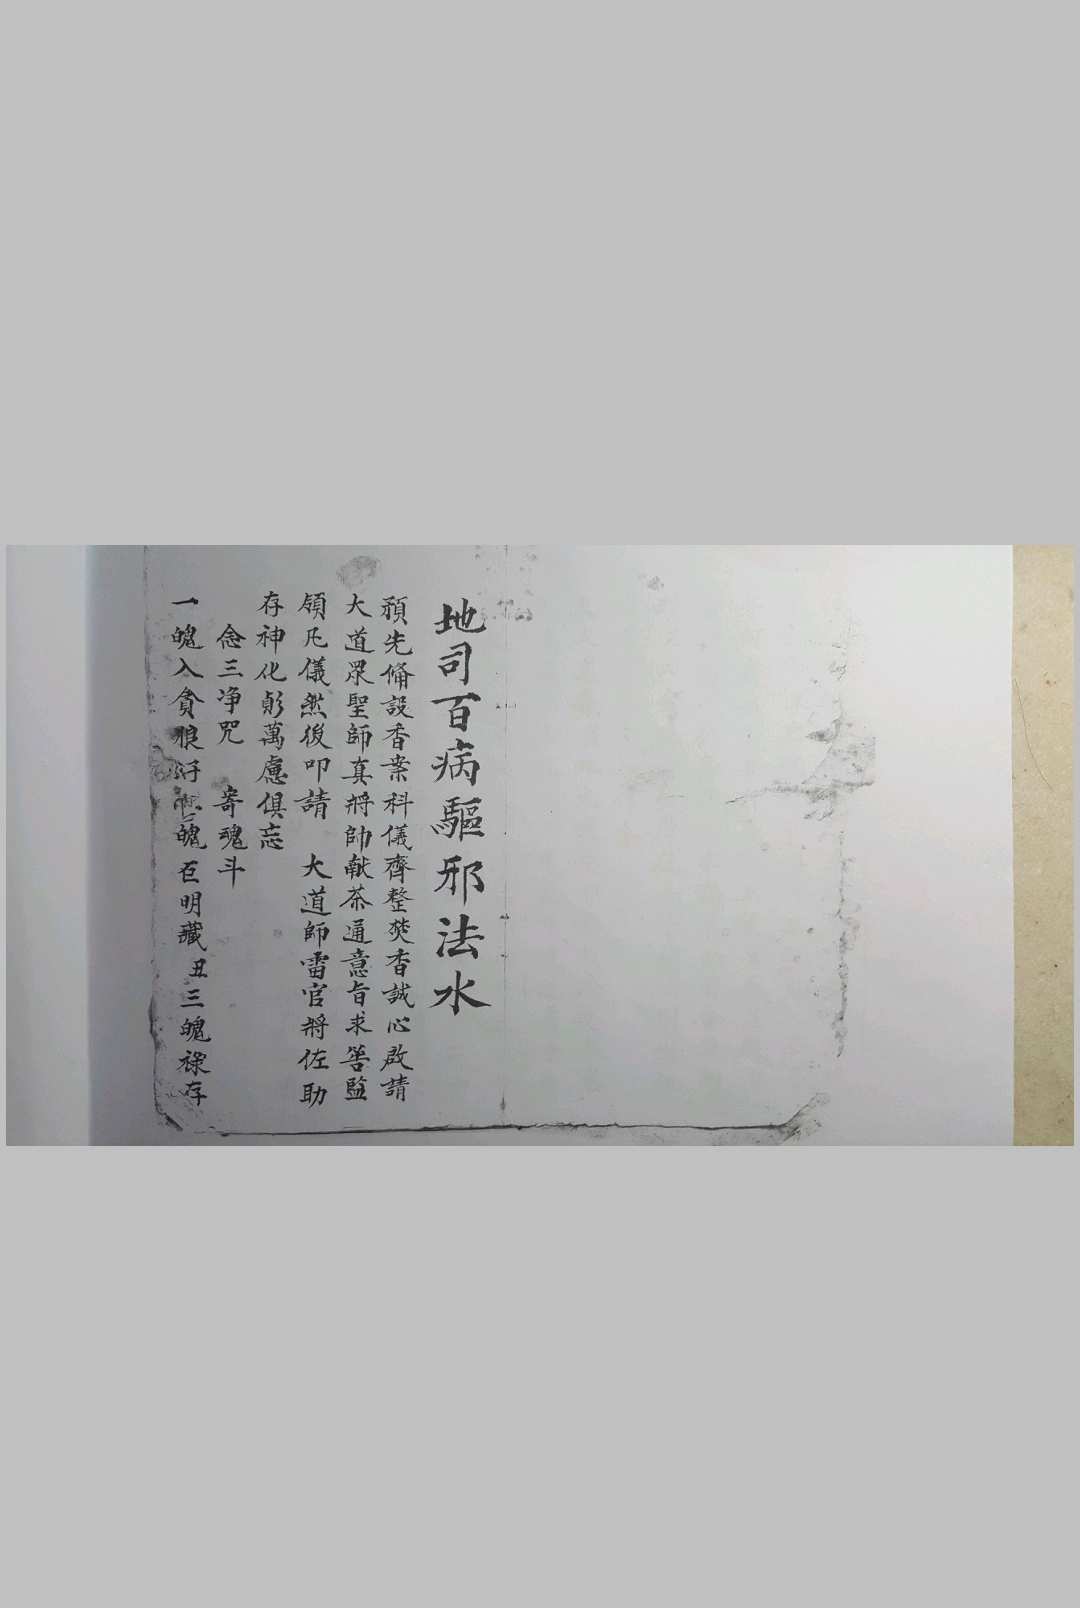 地司百病驅邪法水
預先俻設香案科儀齊整焚香誠心啟請
大道眾聖師真將帥献茶通意旨求筶監
領凡儀然後叩請　大道師雷官將佐助
存神化形萬慮俱忘
念三净咒　寄魂斗
一魄入貪狼　魄巨明藏丑三魄祿存